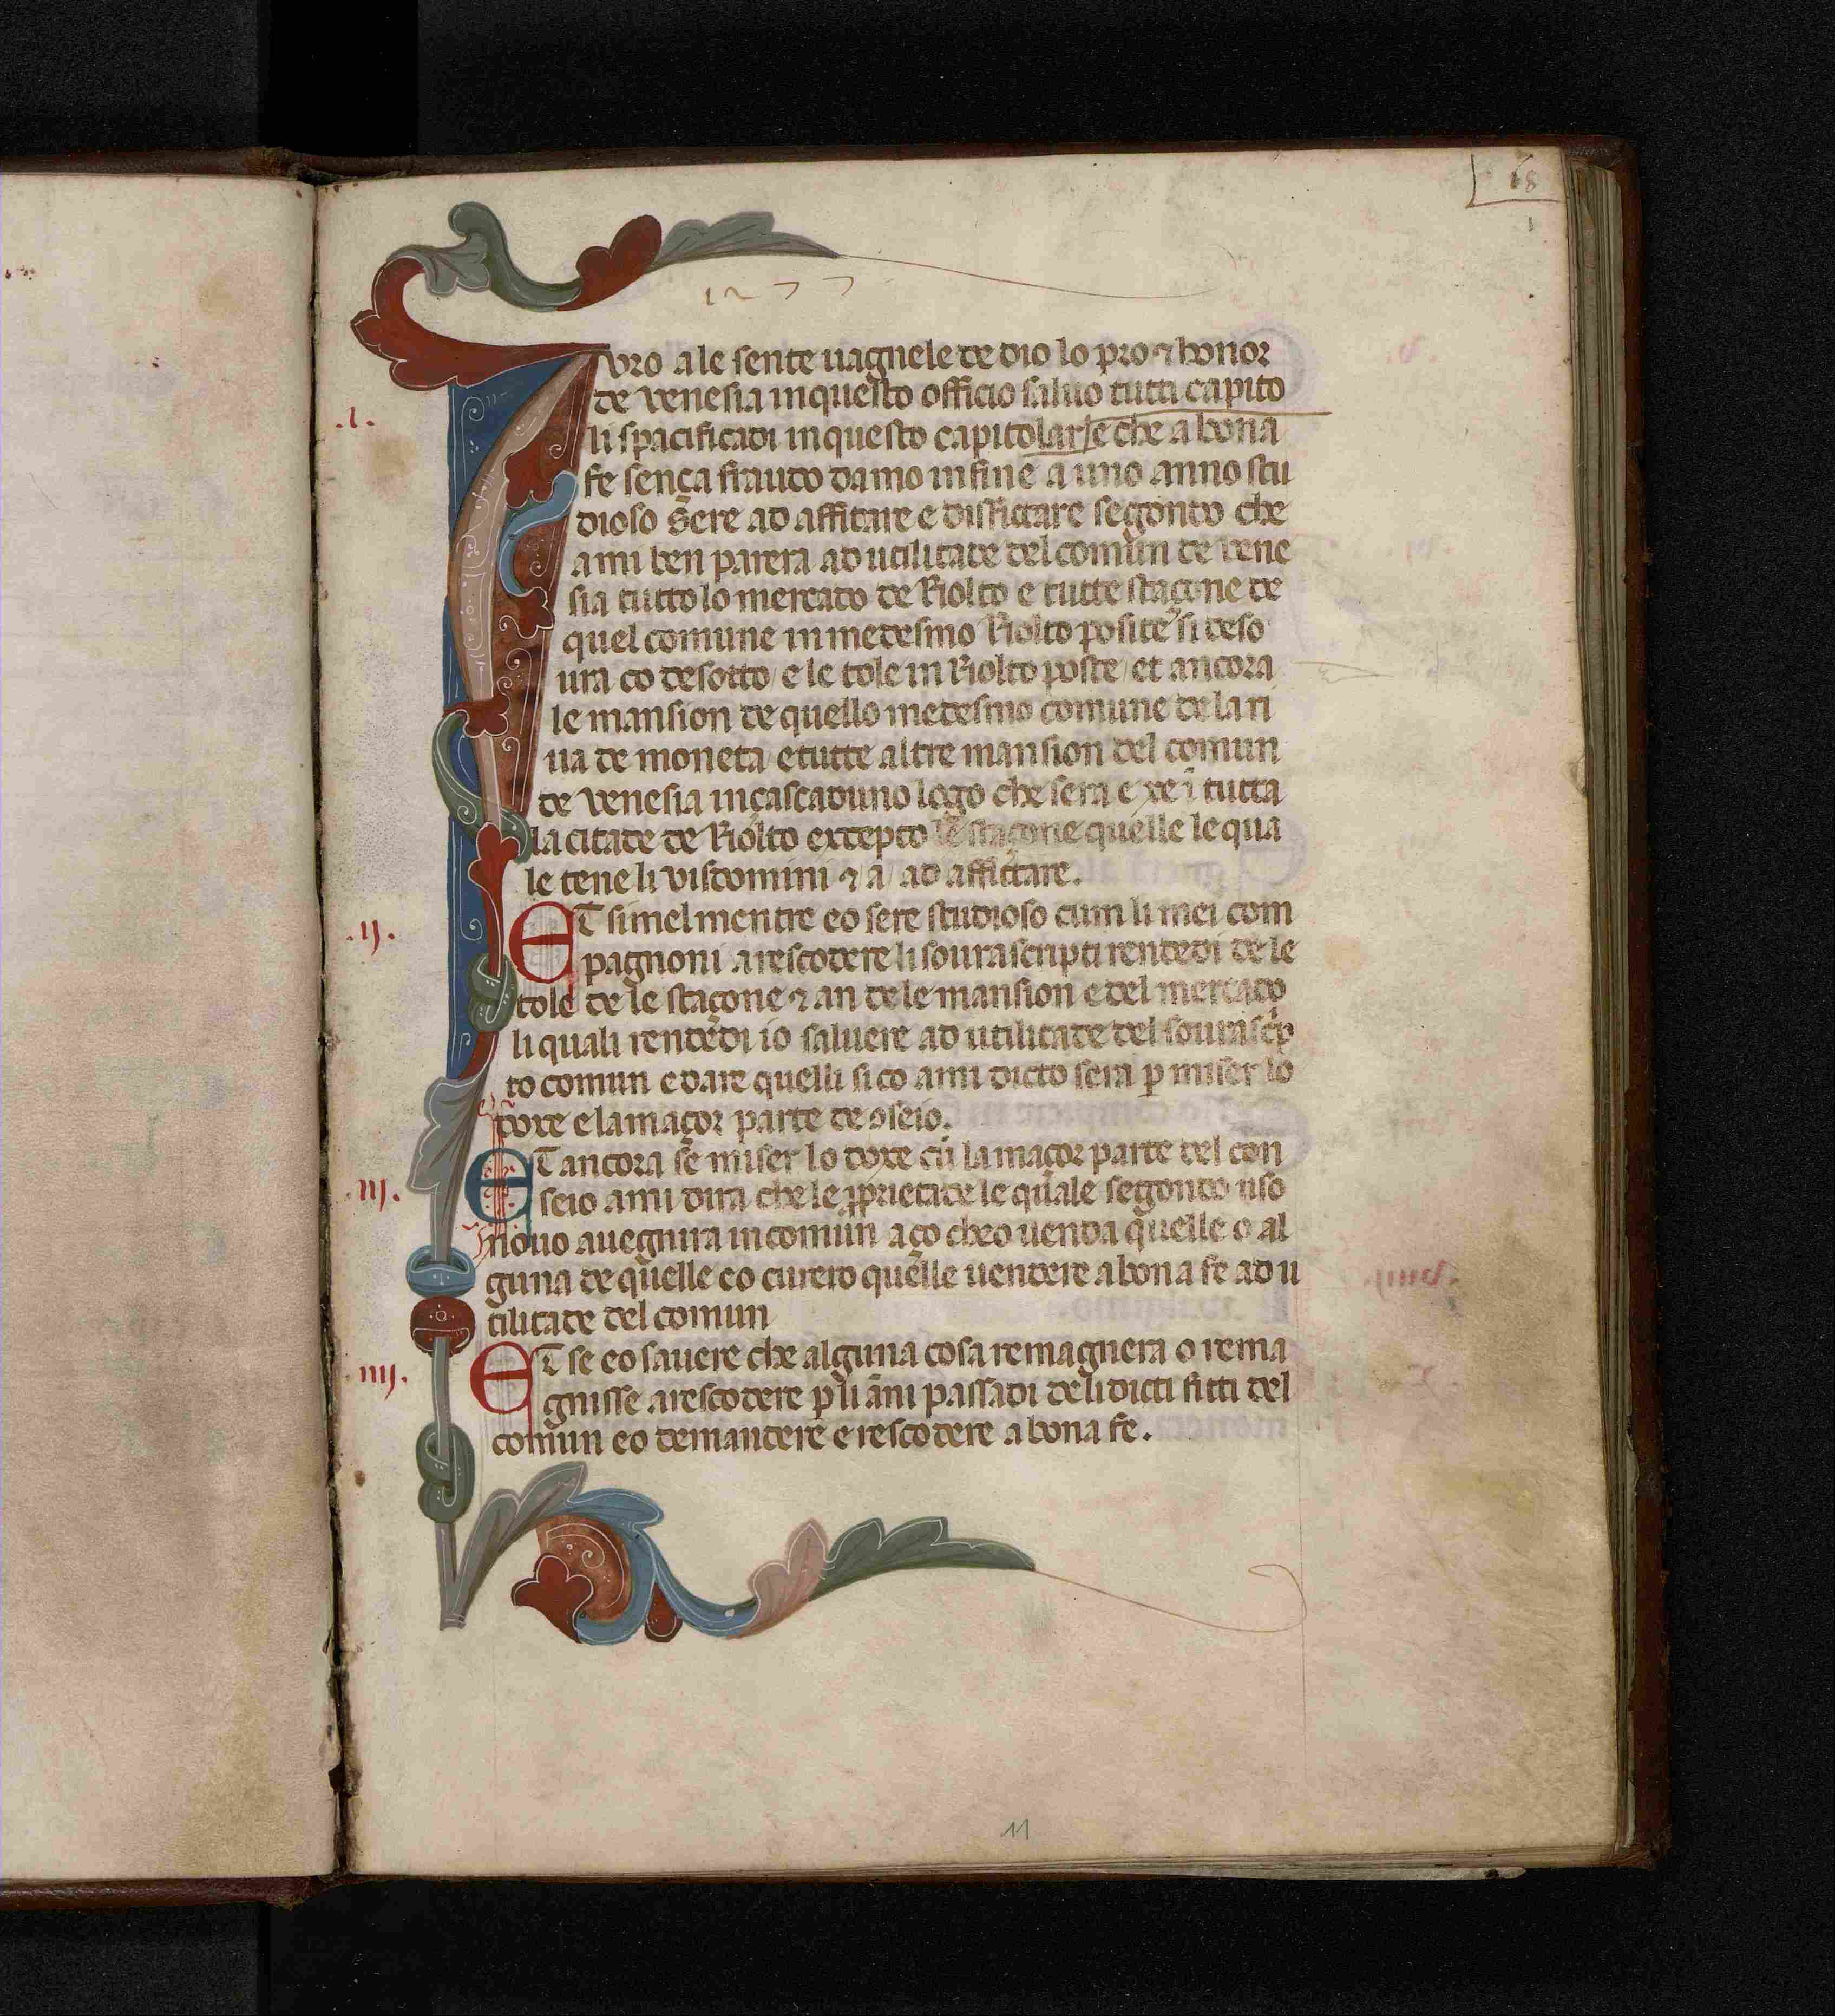 68
1
1277
Iuro ale sente uagnele de dio lo pro ⁊ honor
.i.
de venesia in questo officio saluo tutti capito
li spacificadi in questo capitolar / e che a bona
fe sença fraudo da mo infine a uno anno stu
dioso sere ad affitare e disfictare segondo che
a mi ben parera ad utilitade del comun de vene
sia tutto lo mercado de Riolto e tutte staçone de
quel comune in medesmo Riolto posite si deso
ura co desotto / e le tole in Riolto poste / et ancora
le mansion de quello medesmo comune de la ri
ua de moneta e tutte altre mansion del comun
de venesia in çascaduno logo che sera e xe ī tutta
la citade de Riolto excepto le staçone quelle le qua
le tene li visdomini ⁊ a / ad affictare.
.ij.
ET simelmentre eo sere studioso cum li mei com
pagnoni a rescodere li sourascripti rendedi de le
tole de le staçone ⁊ an de le mansion e del mercado
li quali rendedi io saluere ad utilitade del sourasc̄p
to comun e dare quelli si co a mi dicto sera p miser lo
doxe e la maçor parte de ꝯseio.
.iij.
ET ancora se miser lo doxe cū la maçor parte del con
seio a mi dira che le ꝓprietade le quale segondo uso
nouo auegnira in comun a ço cheo uenda quelle o al
guna de quelle eo curero quelle uendere a bona fe ad u
tilitade del comun
.iiij.
ET se eo sauere che alguna cosa remagnera o rema
gnisse a rescodere p li āni passadi de li dicti fitti del
comun eo demandere e rescodere a bona fe.
11